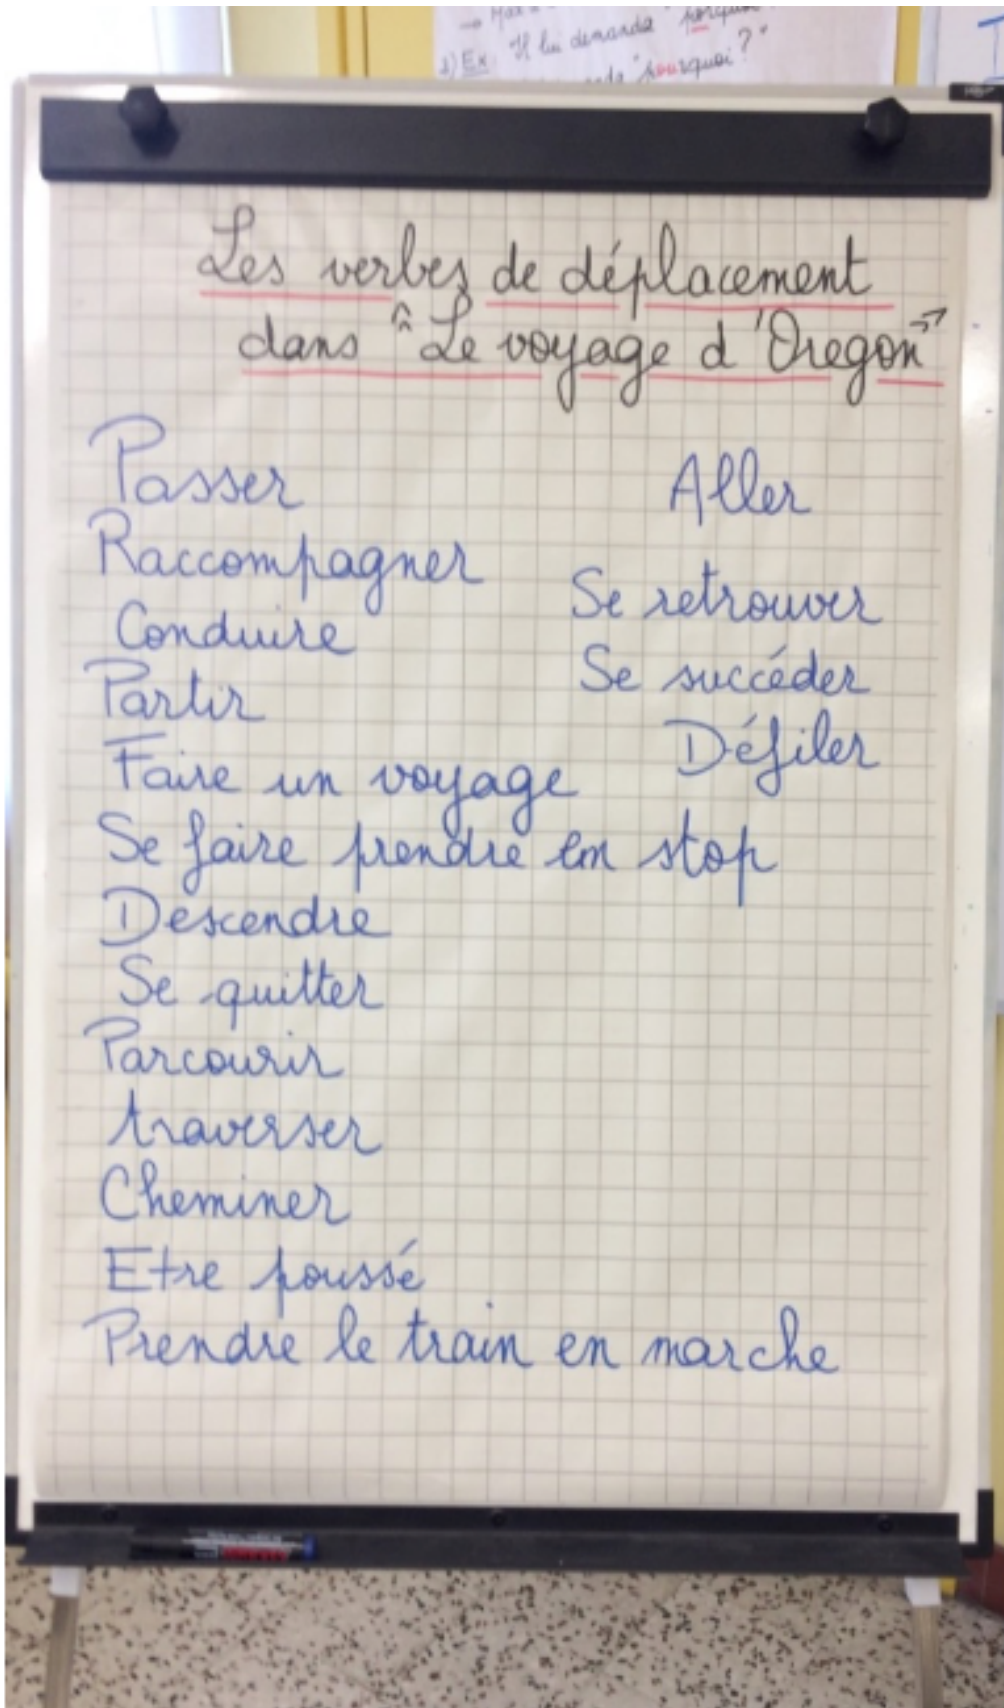 →
1) Ex: Il lui demanda "porquoi
"pourquoi ?"
Les verbes de déplacement
dans "Le voyage d'Oregon"
Passer
Raccompagner
Conduire
Partir
Faire un voyage
Se faire prendre en stop
Descendre
Se quitter
Parcourir
traverser
Cheminer
Etre poussé
Prendre le train en marche
Aller
Se retrouver
Se succéder
Défiler